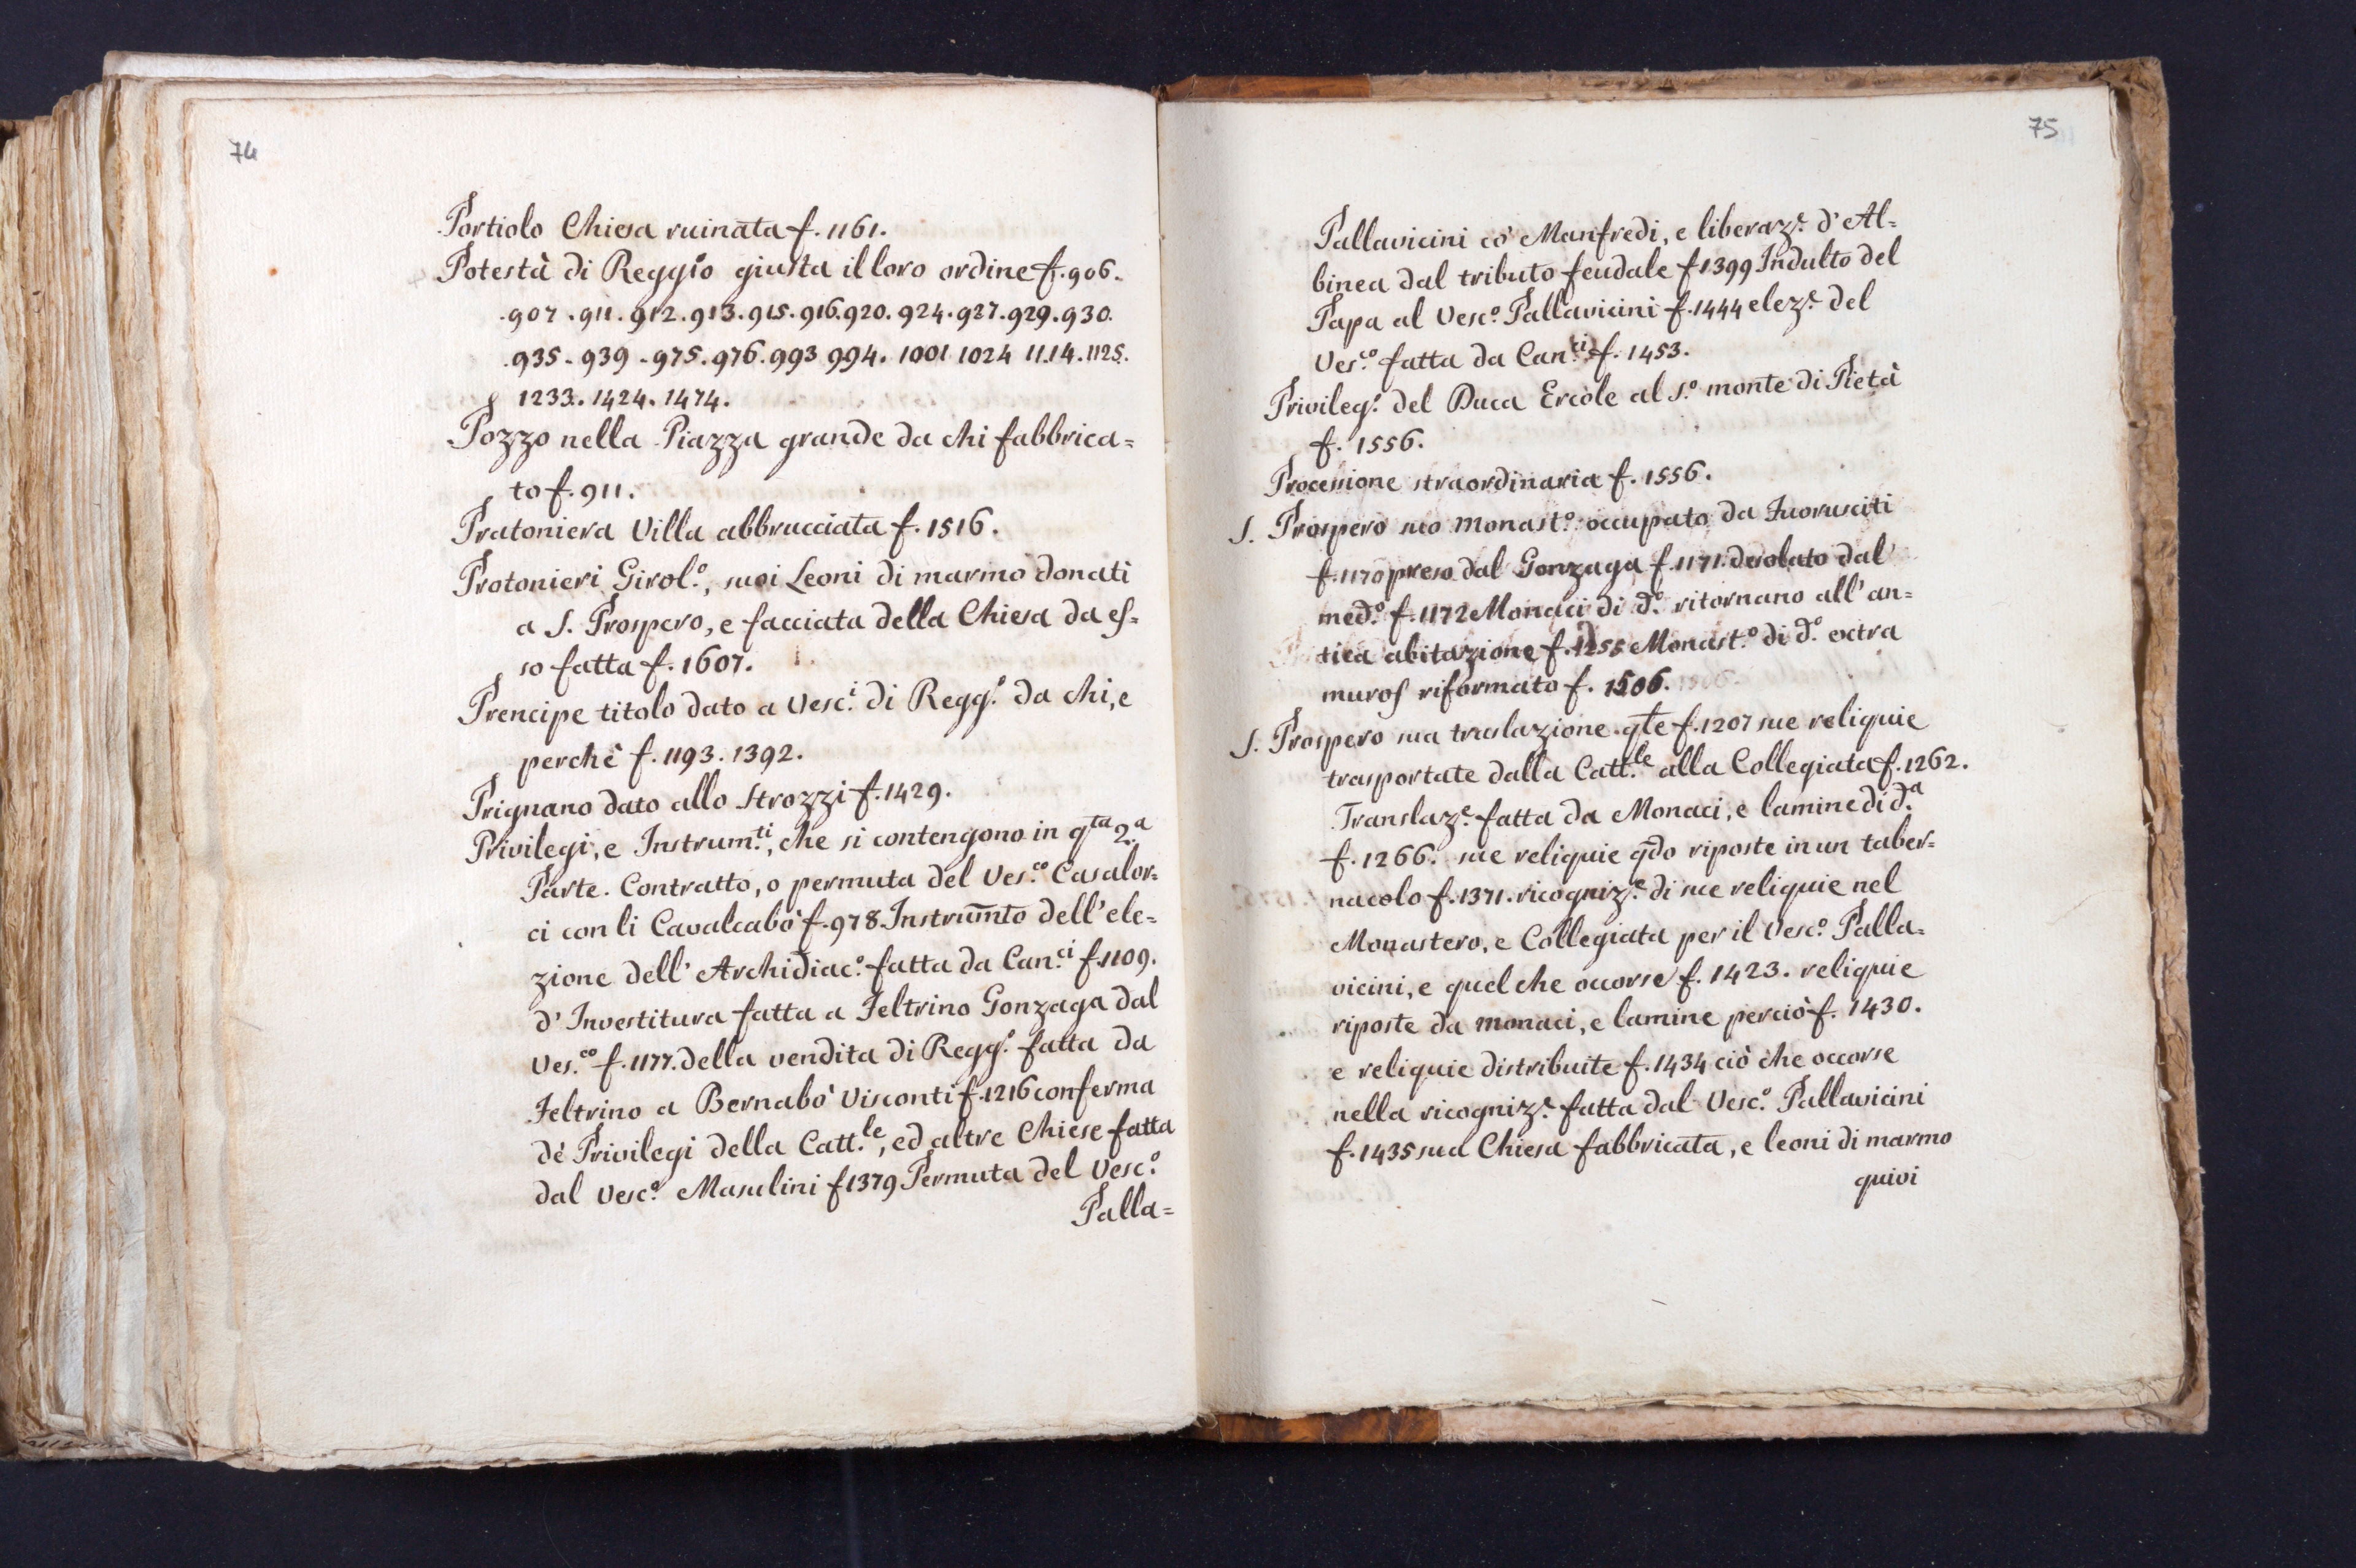 74
Portiolo Chiesa ruinata f. 1161.
Potestà di Reggio giusta il loro ordine f. 906.
.907.911.912.913.915.916.920.924.927.929.930.
.935.939.975.976.993 994. 1001 1024 1114.1125.
1233. 1424. 1474.
Pozzo nella Piazza grande da chi fabbrica=
to f. 911.
Pratoniera Villa abbrucciata f. 1516.
Protonieri Girol.º, suoi Leoni di marmo donati
a S. Prospero, e facciata della Chiesa da es=
so fatta f. 1607.
Prencipe titolo dato a Vesc.i di Regg.º da chi, e
perchè f. 1193. 1392.
Prignano dato allo Strozzi f. 1429.
Privilegi, e Instrum.ti, che si contengono in q.ta 2.a
Parte. Contratto, o permuta del Ves.co Casalor=
ci con li Cavalcabò f. 978. Instrum̄to dell' ele=
zione dell' Archidiac.º fatta da Can.ci f. 1109.
d' Investitura fatta a Feltrino Gonzaga dal
Ves.co f. 1177. della vendita di Regg.º fatta da
Feltrino a Bernabò Visconti f. 1216 conferma
dè Privilegi della Catt.le, ed altre Chiese fatta
dal Vesc.º Masulini f 1379 Permuta del Vesc.º
Palla=
75
Pallavicini cò Manfredi, e liberaz.e d' Al=
binea dal tributo feudale f 1399 Indulto del
Papa al Vesc.º Pallavicini f. 1444 elez.e del
Ves.co fatta da Can.ci f. 1453.
Privileg.º del Duca Ercole al S.º monte di Pietà
f. 1556.
Processione straordinaria f. 1556.
S. Prospero suo Monast.º occupato da Fuorusciti
f. 1170 preso dal Gonzaga f. 1171. desolato dal
med.º f. 1172 Monaci di d.º ritornano all' an=
tica abitazione f. 1255 Monast.º di d.º extra
muros riformato f. 1506.
S. Prospero sua traslazione q̄te f. 1207 sue reliquie
trasportate dalla Catt.le alla Collegiata f. 1262.
Translaz.e fatta da Monaci, e lamine di d.a
f. 1266. sue reliquie q̄do riposte in un taber=
nacolo f. 1371. ricogniz.e di sue reliquie nel
Monastero, e Collegiata per il Vesc.º Palla=
vicini, e quel che occorse f. 1423. reliquie
riposte da monaci, e lamine perciò f. 1430.
e reliquie distribuite f. 1434 ciò che occorse
nella ricogniz.e fatta dal Vesc.º Pallavicini
f. 1435 sua Chiesa fabbricata, e leoni di marmo
quivi